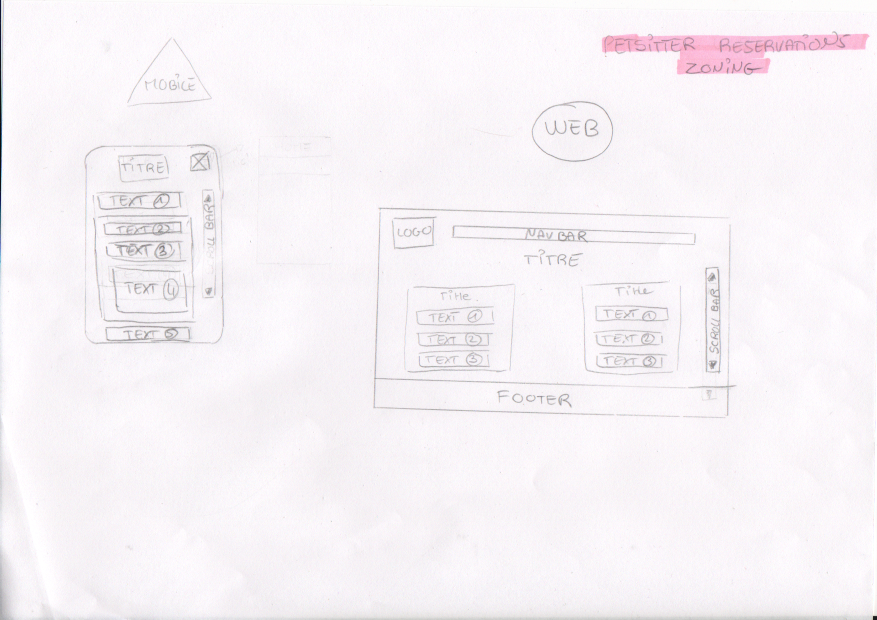 PETSITTER RESERVATIONS
ZONING
MOBILE
TITRE
TEXT 1
TEXT 2
TEXT 3
TEXT 4
TEXT 5
SCROLL BAR
WEB
LOGO
NAV BAR
TITRE
Title
TEXT 1
TEXT 2
TEXT 3
Title
TEXT 1
TEXT 2
TEXT 3
SCROLL BAR
FOOTER